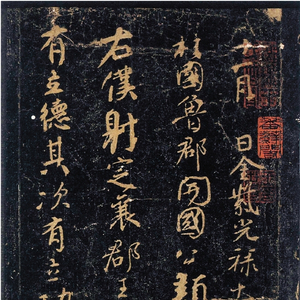 十一月日金紫光祿大
柱國魯郡開國公顏
右僕射定襄郡王
有立德其次有立功